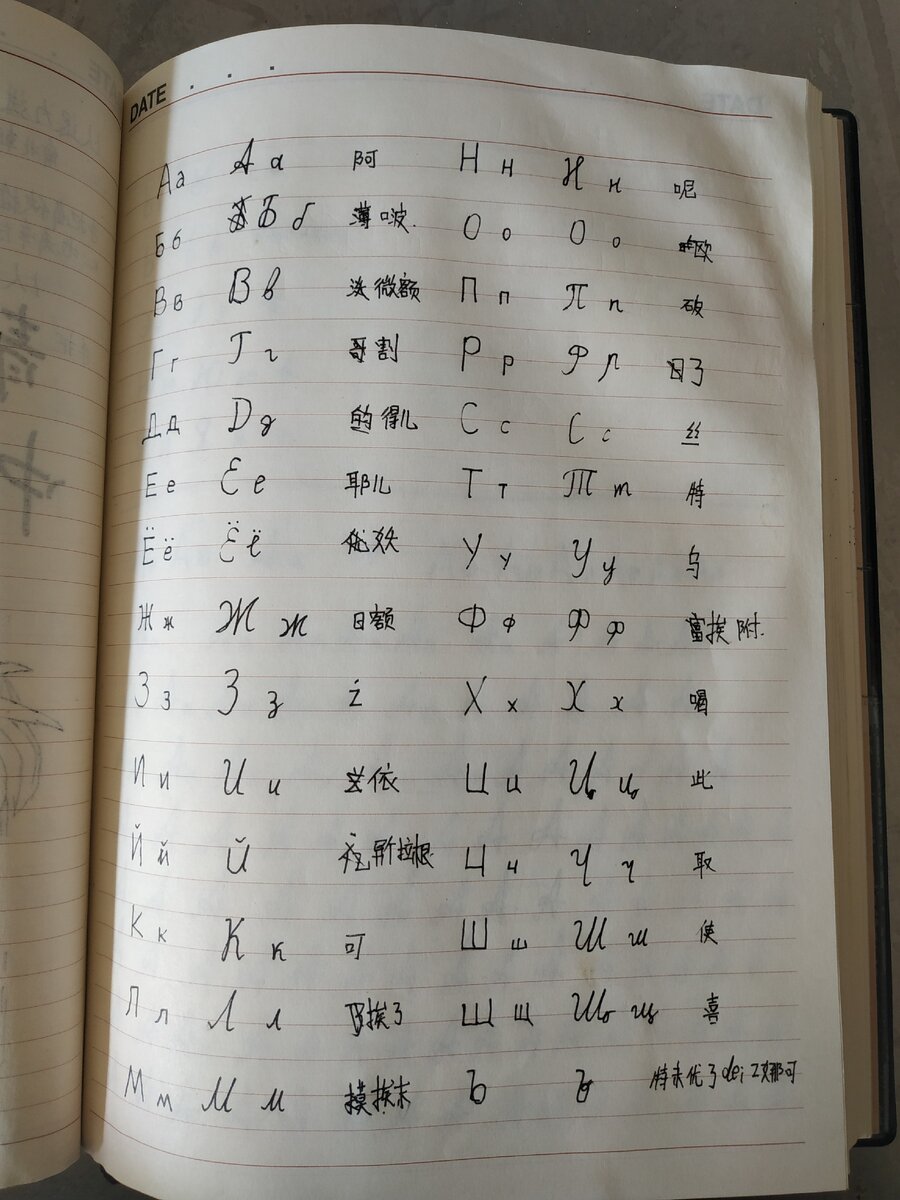 DATE
Аа Аа 阿 Нн Нн 呢
Бб Бб 薄啵. Оо Оо 欧
Вв Вв 微额 Пп Пп 破
Гг Гг 哥割 Рр Рр 日了
Дд Дд 的得儿 Сс Сс 丝
Ее Ее 耶儿 Тт Тт 特
Ёё Ёё Уу Уу 乌
Жж Жж 日额 Фф Фф 富挨附.
Зз Зз ż Хх Хх 喝
Ии Ии 依 Цц Цц 此
Йй Й 拉根 Цч Чч 取
Кк Кк 可 Шш Шш 使
Лл Лл 挨了 Щщ Щщ 喜
Мм Мм 摸挨末 Ъ Ъ 特未优了 dei 那可